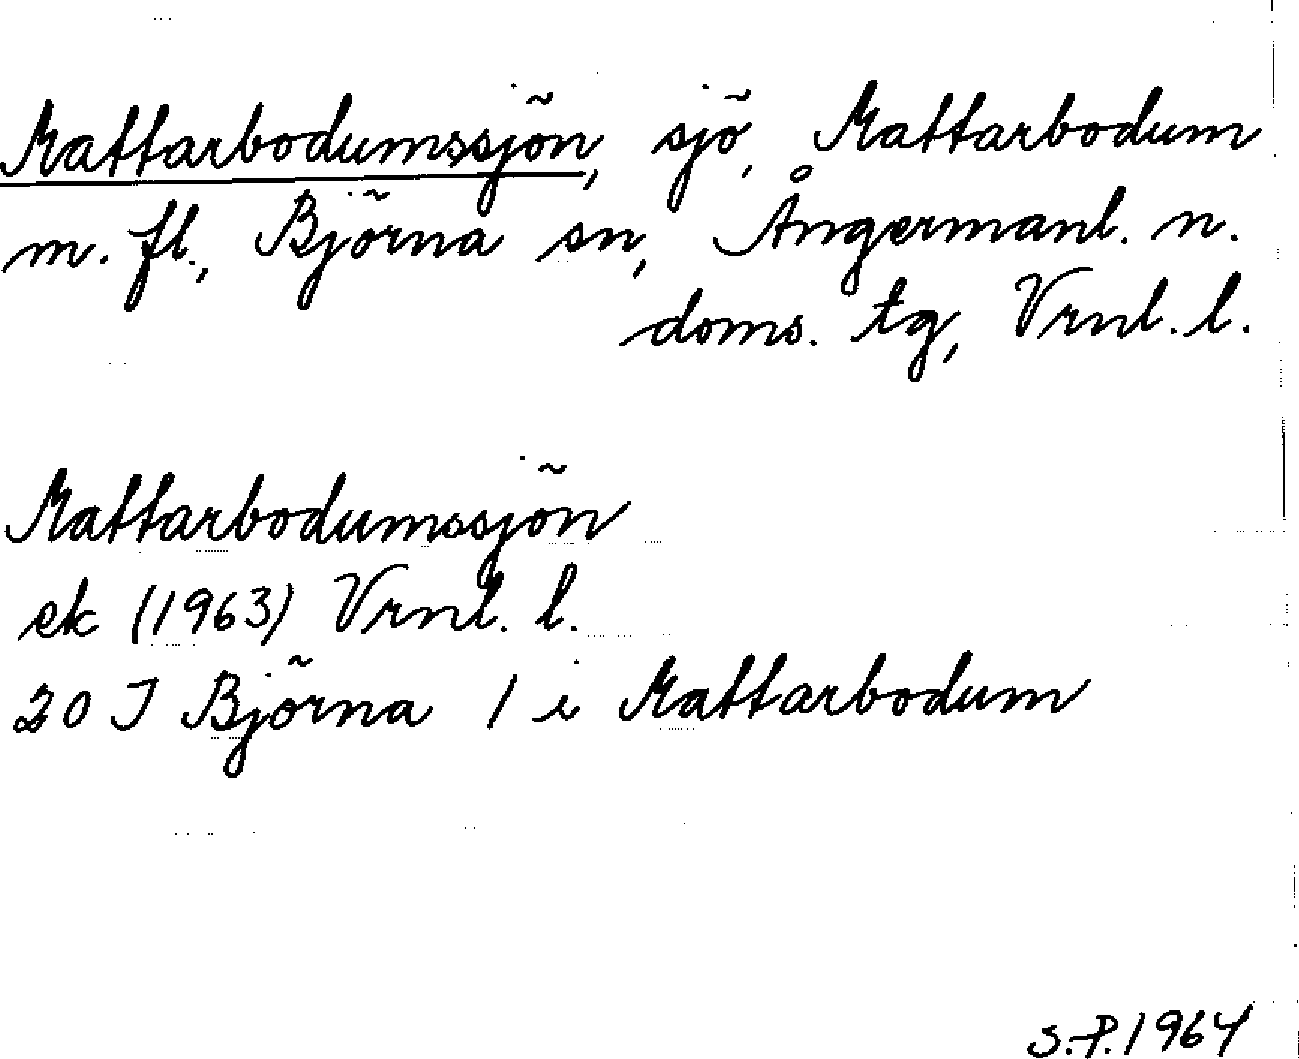 Mattarbodumssjön, sjö, Mattarbodum
m. fl., Björna sn, Ångermanl. n.
doms. tg, Vrnl. l.
Mattarbodumssjön
ek (1963) Vrnl. l.
20 J Björna 1 i Mattarbodum
S.P. 1964